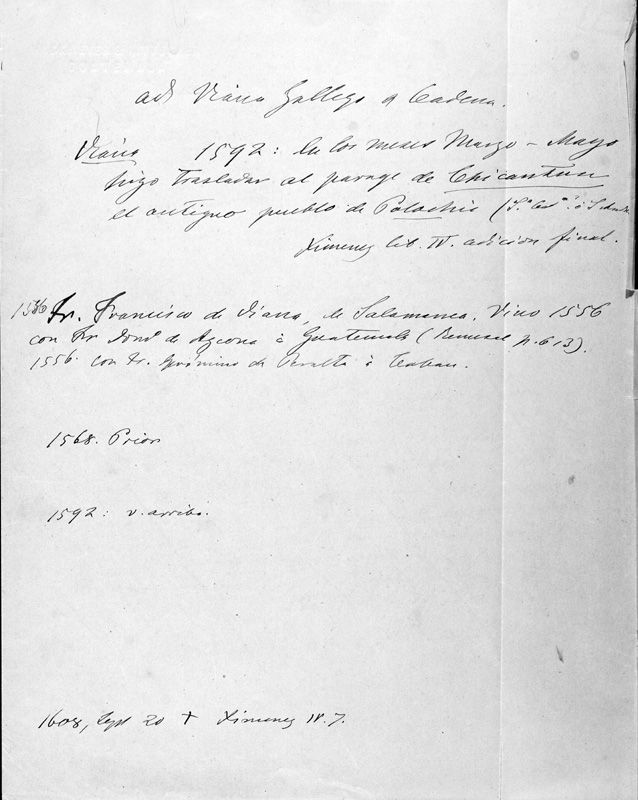 ad Viana Gallego y Cadena.
Viana 1592: En los meses Marzo - Mayo
hizo trasladar al parage de Chicantun
el antiguo pueblo de Polochic
Ximenez lib. IV. adicion final.
1556 Fr. Francisco de Viana, de Salamanca. Vino 1556
con Fr. de Azcona à Guatemala (Remesal p. 613).
1556. con Fr. Gerónimo de Peralta à Coban.
1568. Prior
1592: v. arriba.
1608, Sept 20 † Ximenez IV. 7.